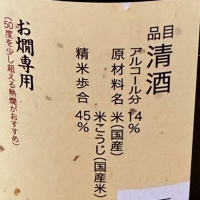 品目 清酒
アルコール分 14%
原材料名 米(国産)
米こうじ(国産米)
精米歩合 45%
お燗専用
(50度を少し超える熱燗がおすすめ)